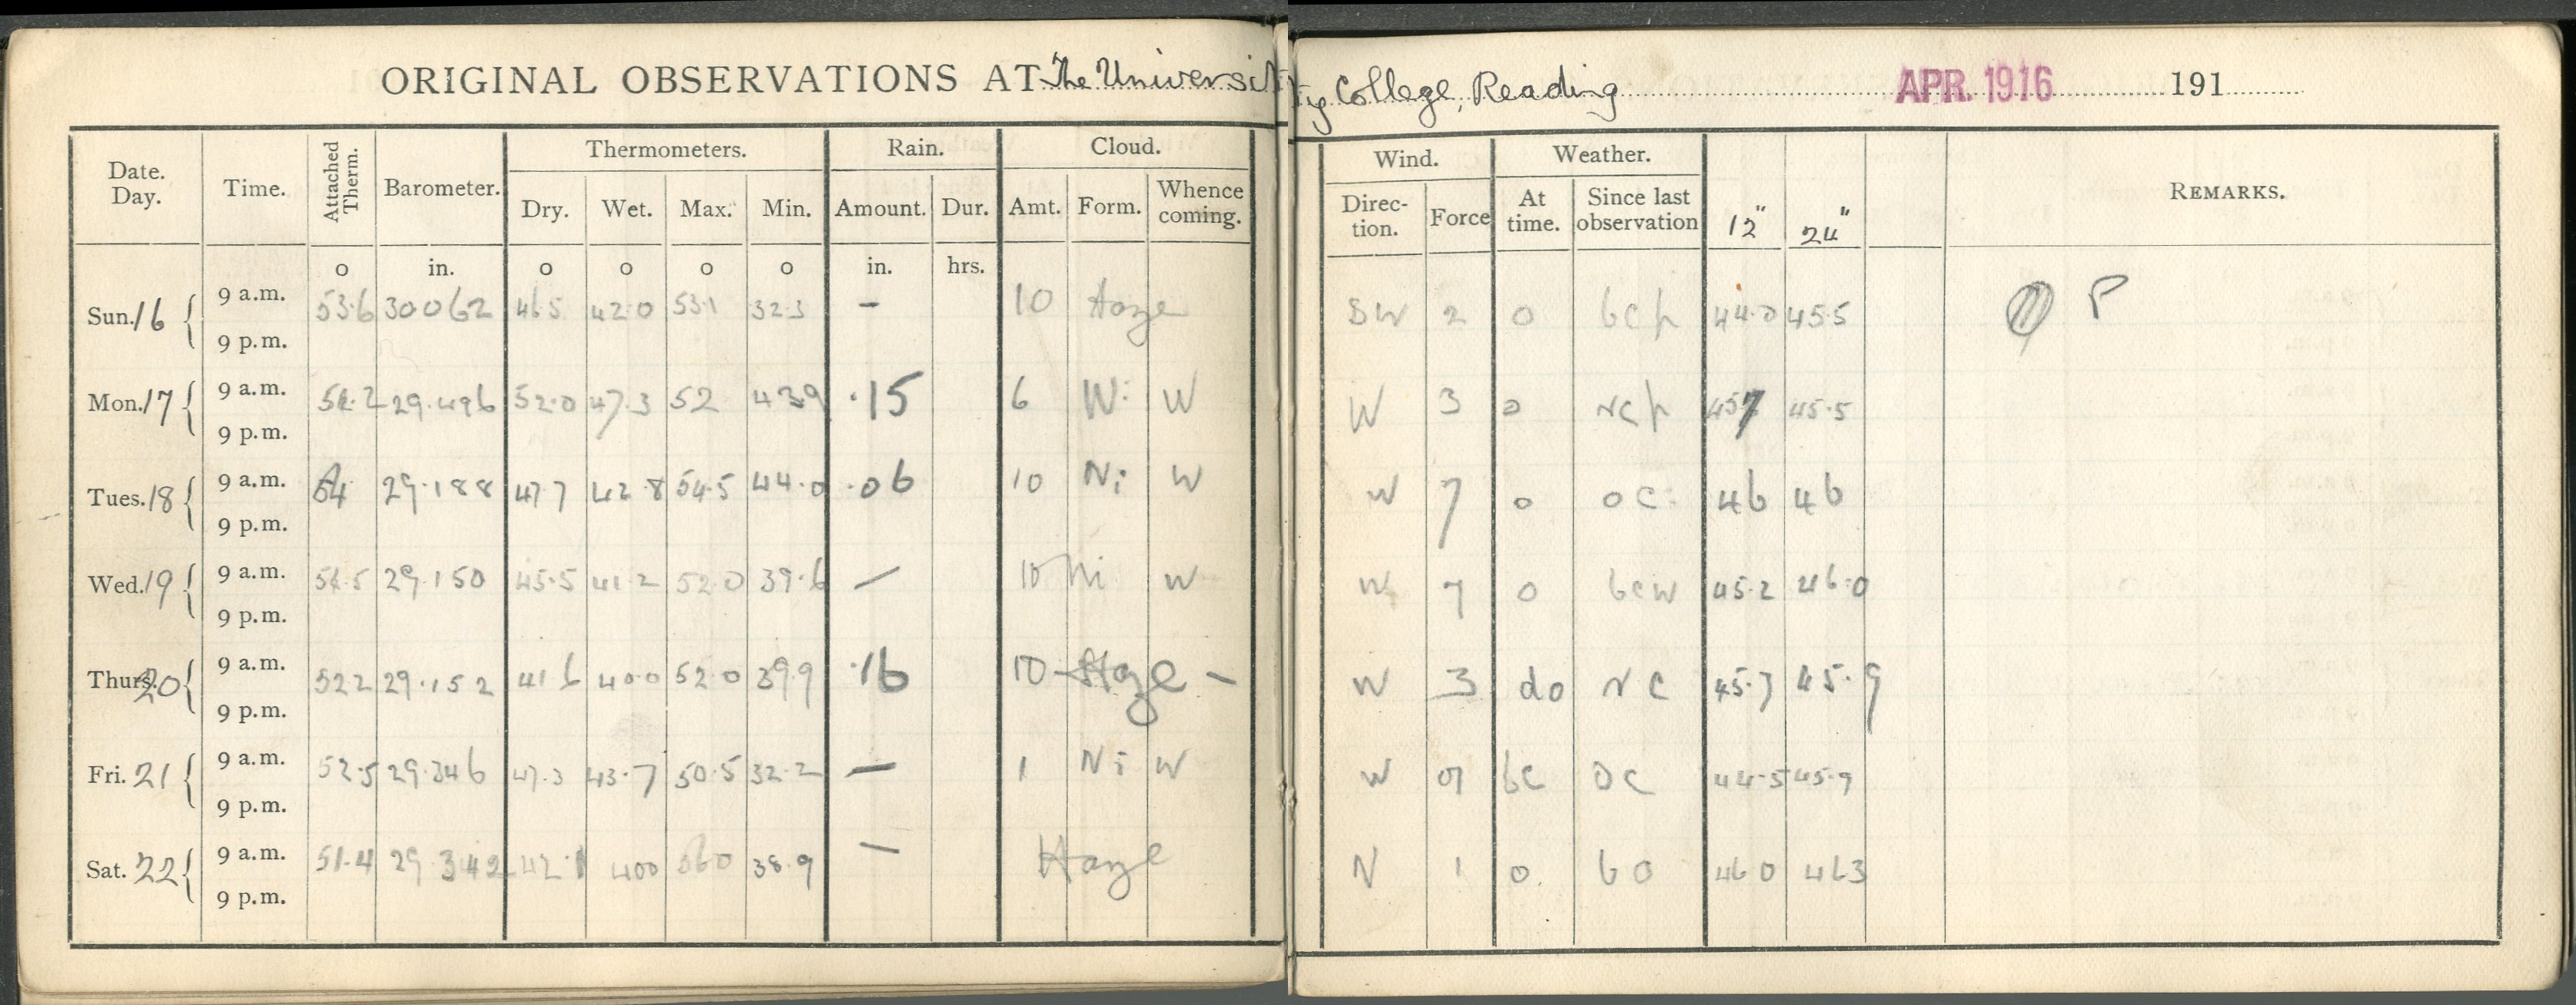 ORIGINAL OBSERVATIONS AT The University College, Reading APR. 1916 191
Date. Day. Time. Attached Therm. Barometer. Thermometers. Rain. Cloud. Wind. Weather. REMARKS.
Dry. Wet. Max. Min. Amount. Dur. Amt. Form. Whence coming. Direction. Force At time. Since last observation 12" 24"
o in. o o o o in. hrs.
Sun. 16 9 a.m. 53.6 30062 46.5 42.0 53.1 32.3 — 10 Haze SW 2 o bch 44.0 45.5 P
9 p.m.
Mon. 17 9 a.m. 29.496 52.0 47.3 52 43.9 .15 6 W W 3 o 45.5
9 p.m.
Tues. 18 9 a.m. 54 29.188 47.7 42.8 54.5 44.0 .06 10 Ni W W 7 o oc 46 46
9 p.m.
Wed. 19 9 a.m. 54.5 29.150 45.5 41.2 52.0 39.6 — 10 Ni W W 7 o bcw 45.2 46.0
9 p.m.
Thurs. 20 9 a.m. 52.2 29.152 41.6 40.0 52.0 39.9 .16 10 Haze — W 3 do 45.7 45.9
9 p.m.
Fri. 21 9 a.m. 52.5 29.346 47.3 43.7 50.5 32.2 — 1 Ni W W bc oc 44.5 45.9
9 p.m.
Sat. 22 9 a.m. 51.4 29.342 42.1 400 560 38.9 — Haze N 1 o. bo 46 0 463
9 p.m.